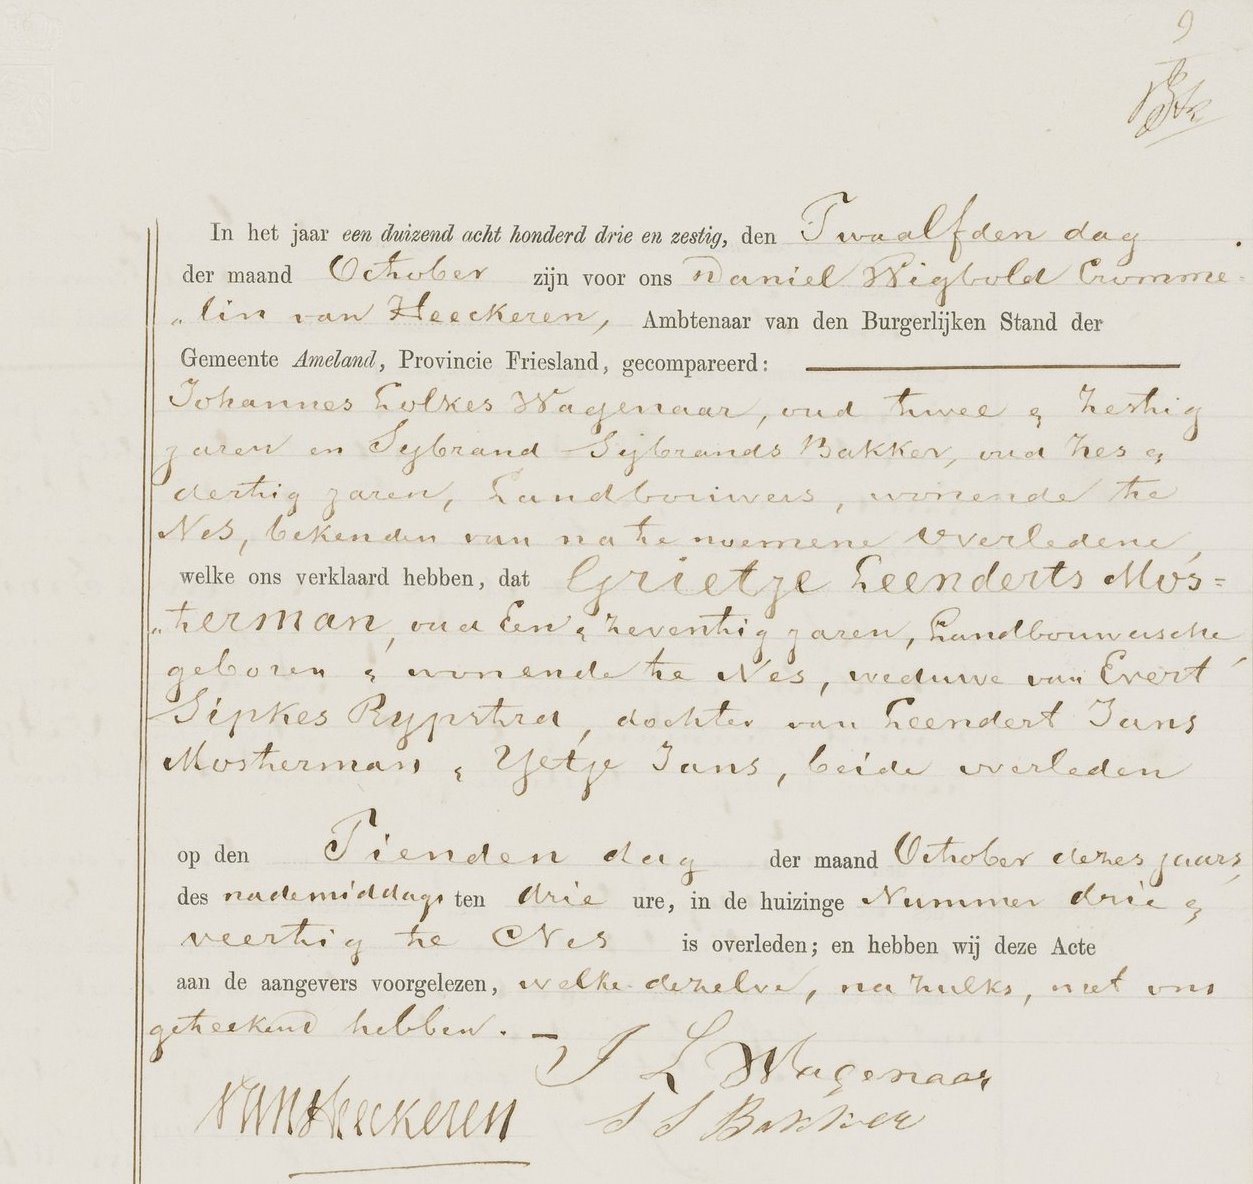 9
In het jaar een duizend acht honderd drie en zestig, den Twaalfden dag
der maand October zijn voor ons Daniel Wigbold Cromme-
„lin van Heeckeren, Ambtenaar van den Burgerlijken Stand der
Gemeente Ameland, Provincie Friesland, gecompareerd:
Johannes Lolkes Wagenaar, oud twee & zestig
jaren en Sybrand Sijbrands Bakker, oud zes &
dertig jaren, Landbouwers, wonende te
Nes, bekenden van na te noemene Overledene,
welke ons verklaard hebben, dat Grietje Leenderts Mos=
„terman, oud Een & zeventig jaren, Landbouwersche
geboren & wonende te Nes, weduwe van Evert
Sipkes Rypstra, dochter van Leendert Jans
Mosterman & Yetje Jans, beide overleden
op den Tienden dag der maand October dezes jaars,
des nademiddags ten drie ure, in de huizinge Nummer drie &
veertig te Nes is overleden; en hebben wij deze Acte
aan de aangevers voorgelezen, welke dezelve, na zulks, met ons
geteekend hebben. –
J L Wagenaar
van Heeckeren
S S Bakker